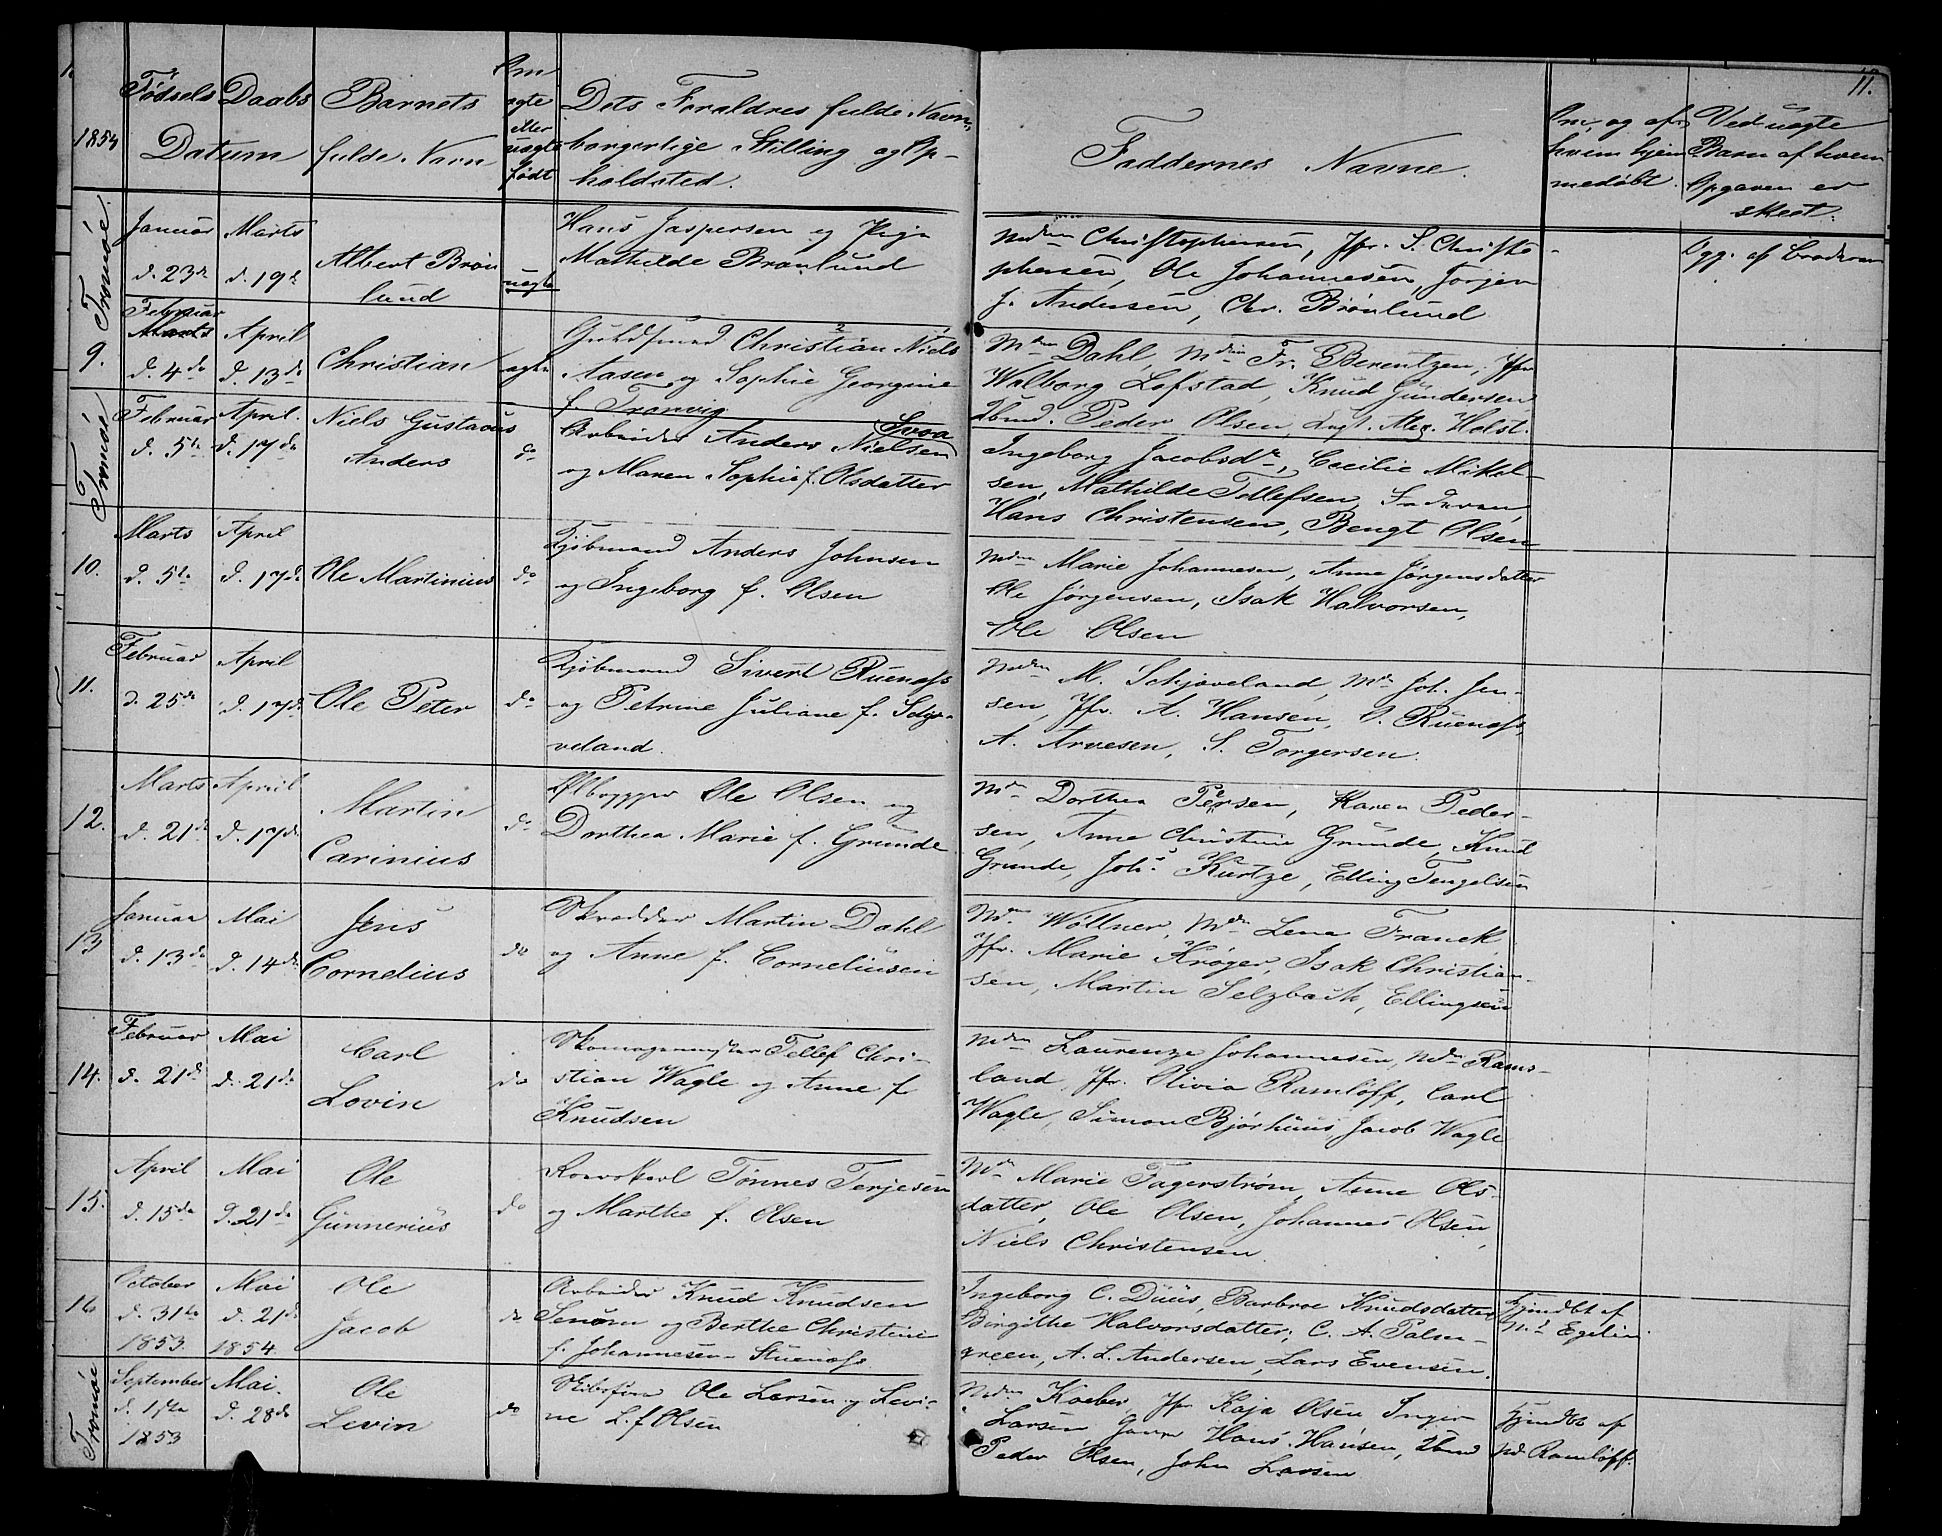 11.
1854
Fødsels Daabs
Datum
Barnets
fulde Navn
Om
ægte
eller
uægte
født
Dets Forældres fulde Navn,
borgerlige Stilling og Op-
holdsted.
Faddernes Navne.
Om, og af
hvem hjem
medøbt.
Ved uægte
Barn af hvem
Opgaven er
skeet.
Tromøe.
Januar d. 23de
Marts d. 19de
Albert Brön
lund
uægte
Hans Jaspersen og Pige
Mathilde Brönlund
Mdm Christophersen, Jfr. S. Christo-
phersen, Ole Johannesen, Jörgen
J. Andersen, Chr. Brönlund
Opg. af Moderen
9.
Februar
Marts
d. 4de
April d. 13de
Christian
ægte
Guldsmed Christian Niels
Aasen og Sophie Georgine
f. Tronvig
Mdm Dahl, Mdm Fr. Berentzen, Jfr
Walborg Lofstad, Knud Gundersen
Peder Olsen, Alex. Holst.
Tromøe
Februar d. 5te
April. d. 17de
Niels Gustavus
Anders
do
Svea
Arbeider Anders Nielsen
og Maren Sophie f. Olsdatter
Ingeborg Jacobsdr, Cecilie Mikel-
sen, Mathilde Tellefsen, Faderen,
Hans Christensen, Bengt Olsen
10.
Marts d. 5te
April d. 17de
Ole Martinius
do
Kjöbmand Anders Johnsen
og Ingeborg f. Olsen
Mdm Marie Johannesen, Anne Jörgensdatter
Ole Jörgensen, Isak Halvorsen,
Ole Olsen
11.
Februar d. 25de
April d. 17de
Ole Peter
do
Kjöbmand Sivert Ruenæss
og Petrine Juliane f. Schjæ-
veland.
Mdm M. Schjæveland, Md Joh. Jen-
sen, Jfr. A. Hansen, O. Ruenæss,
A. Arvesen, S. Torgersen.
12.
Marts d. 21de
April d. 17de
Martin
Carinius
do
Ølbrygger Ole Olsen og
Dorthea Marie f. Grunde
Mdm Dorthea Persen, Karen Peder-
sen, Anne Christine Grunde, Knud
Grunde, Johs Kurtze, Elling Tengelsen
13
Januar d. 13de
Mai d. 14de
Jens
Cornelius
do
Skrædder Martin Dahl
og Anne f. Corneliusen
Md. Wöllner, Mdm Lena Franck,
Jfr. Marie Kröger, Isak Christian-
sen, Martin Selzbach, Ellingsen
14.
Februar d. 21de
Mai d. 21de
Carl
Lovin
do
Skomagermester Tellef Chri-
stian Wagle og Anne f
Knudsen
Mdm Laurenze Johannesen, Mdm Rams-
land, Jfr. Olivia Ramlöff, Carl
Wagle, Simon Bjørhuus, Jacob Wagle
15.
April d. 15de
Mai d. 21de
Ole
Gunnerius
do
Roerskarl Tönnes Terjesen
og Marthe f. Olsen
Mdm Marie Fagerström, Anne Ols-
datter, Ole Olsen, Johannes Olsen,
Niels Christensen
16
October d. 31te 1853.
Mai d. 21de 1854.
Ole
Jacob
do
Arbeider Knud Knudsen
Senum og Berthe Christine
f. Johannesen Stuenæss.
Ingeborg C. Duus, Barbroe Knudsdatter
Birgithe Halvorsdatter, C. A. Palm-
green, A. L. Andersen, Lars Evensen.
Hjemdbt af
Md Egelin
Tromøe
September d. 17de 1853
Mai. d. 28de
Ole
Levin
do
Skibsförer Ole Larsen og Levi-
ne L. f Olsen
Mdm Kaeber, Jfr Kaja Olsen, Inger
Larsen, Hans Hansen,
Peder Olsen, John Larsen
Hjemdbt af
Md. Ramlöff.